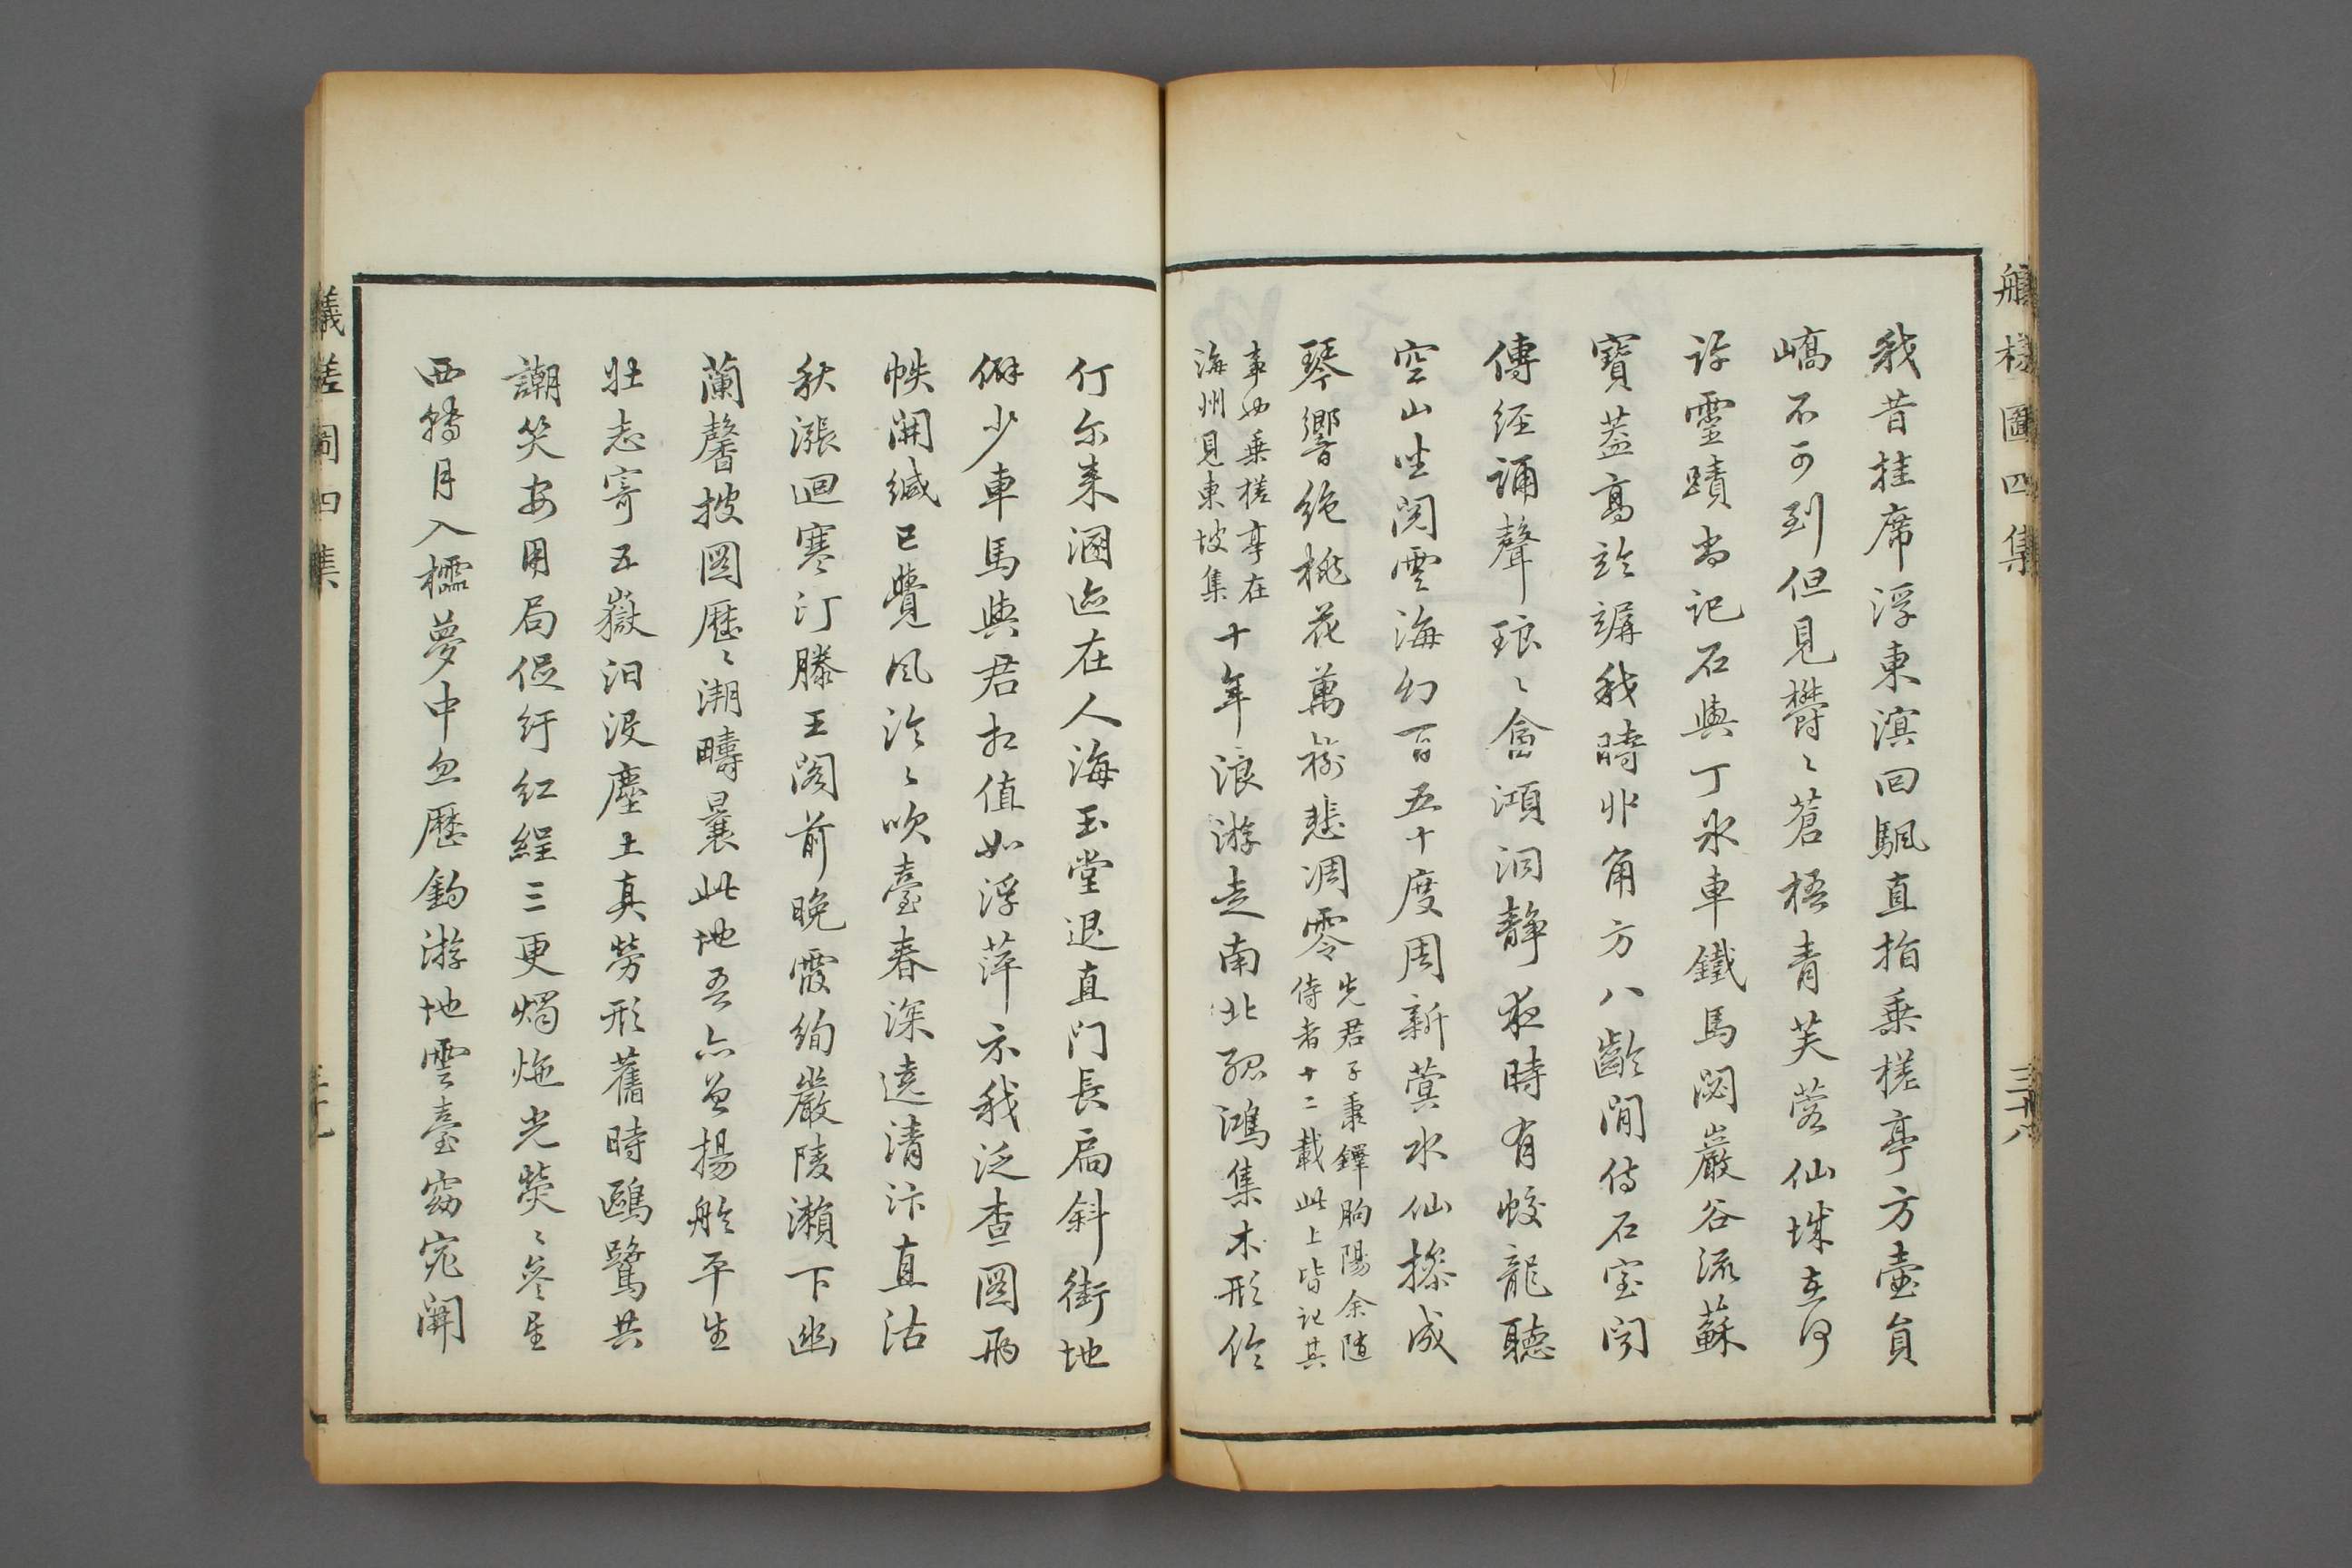 艤槎圖四集
三十八
我昔挂席浮東溟回颿直指乗槎亭方壷員
嶠不可到但見欝〻蒼梧青芙蓉仙城
許靈蹟尚記石與丁氷車鐵馬閟巖谷流蘇
寶葢高於𦨵我時丱角方八齡閒侍石室問
傳經誦聲琅〻會澒洞静夜時有蛟龍聽
空山坐閲雲海幻百五十度周新蓂水仙操成
琴響絶桃花萬樹悲凋零
先君子秉鐸朐陽余随
侍者十二載此上皆記其
事也乗槎亭在
海州見東坡集
十年浪游走南北孤鴻集木形伶
仃尓来溷迹在人海玉堂退直門長扃斜街地
僻少車馬與君相值如浮萍示我泛查圖兩
帙開緘已覺風泠〻吹臺春深遶清汴直沽
秋漲迴寒汀滕王閣前晩霞絢嚴陵瀬下幽
蘭馨披圖歷〻溯疇曩此地吾亦曽揚舲平生
壮志寄五嶽汩没塵土真勞形舊時鷗鷺共
謝笑安用局促紆紅綎三更燭炧光熒〻參星
西轉月入櫺夢中忽歷釣游地雲臺窈窕開
艤槎圖四集
三十九